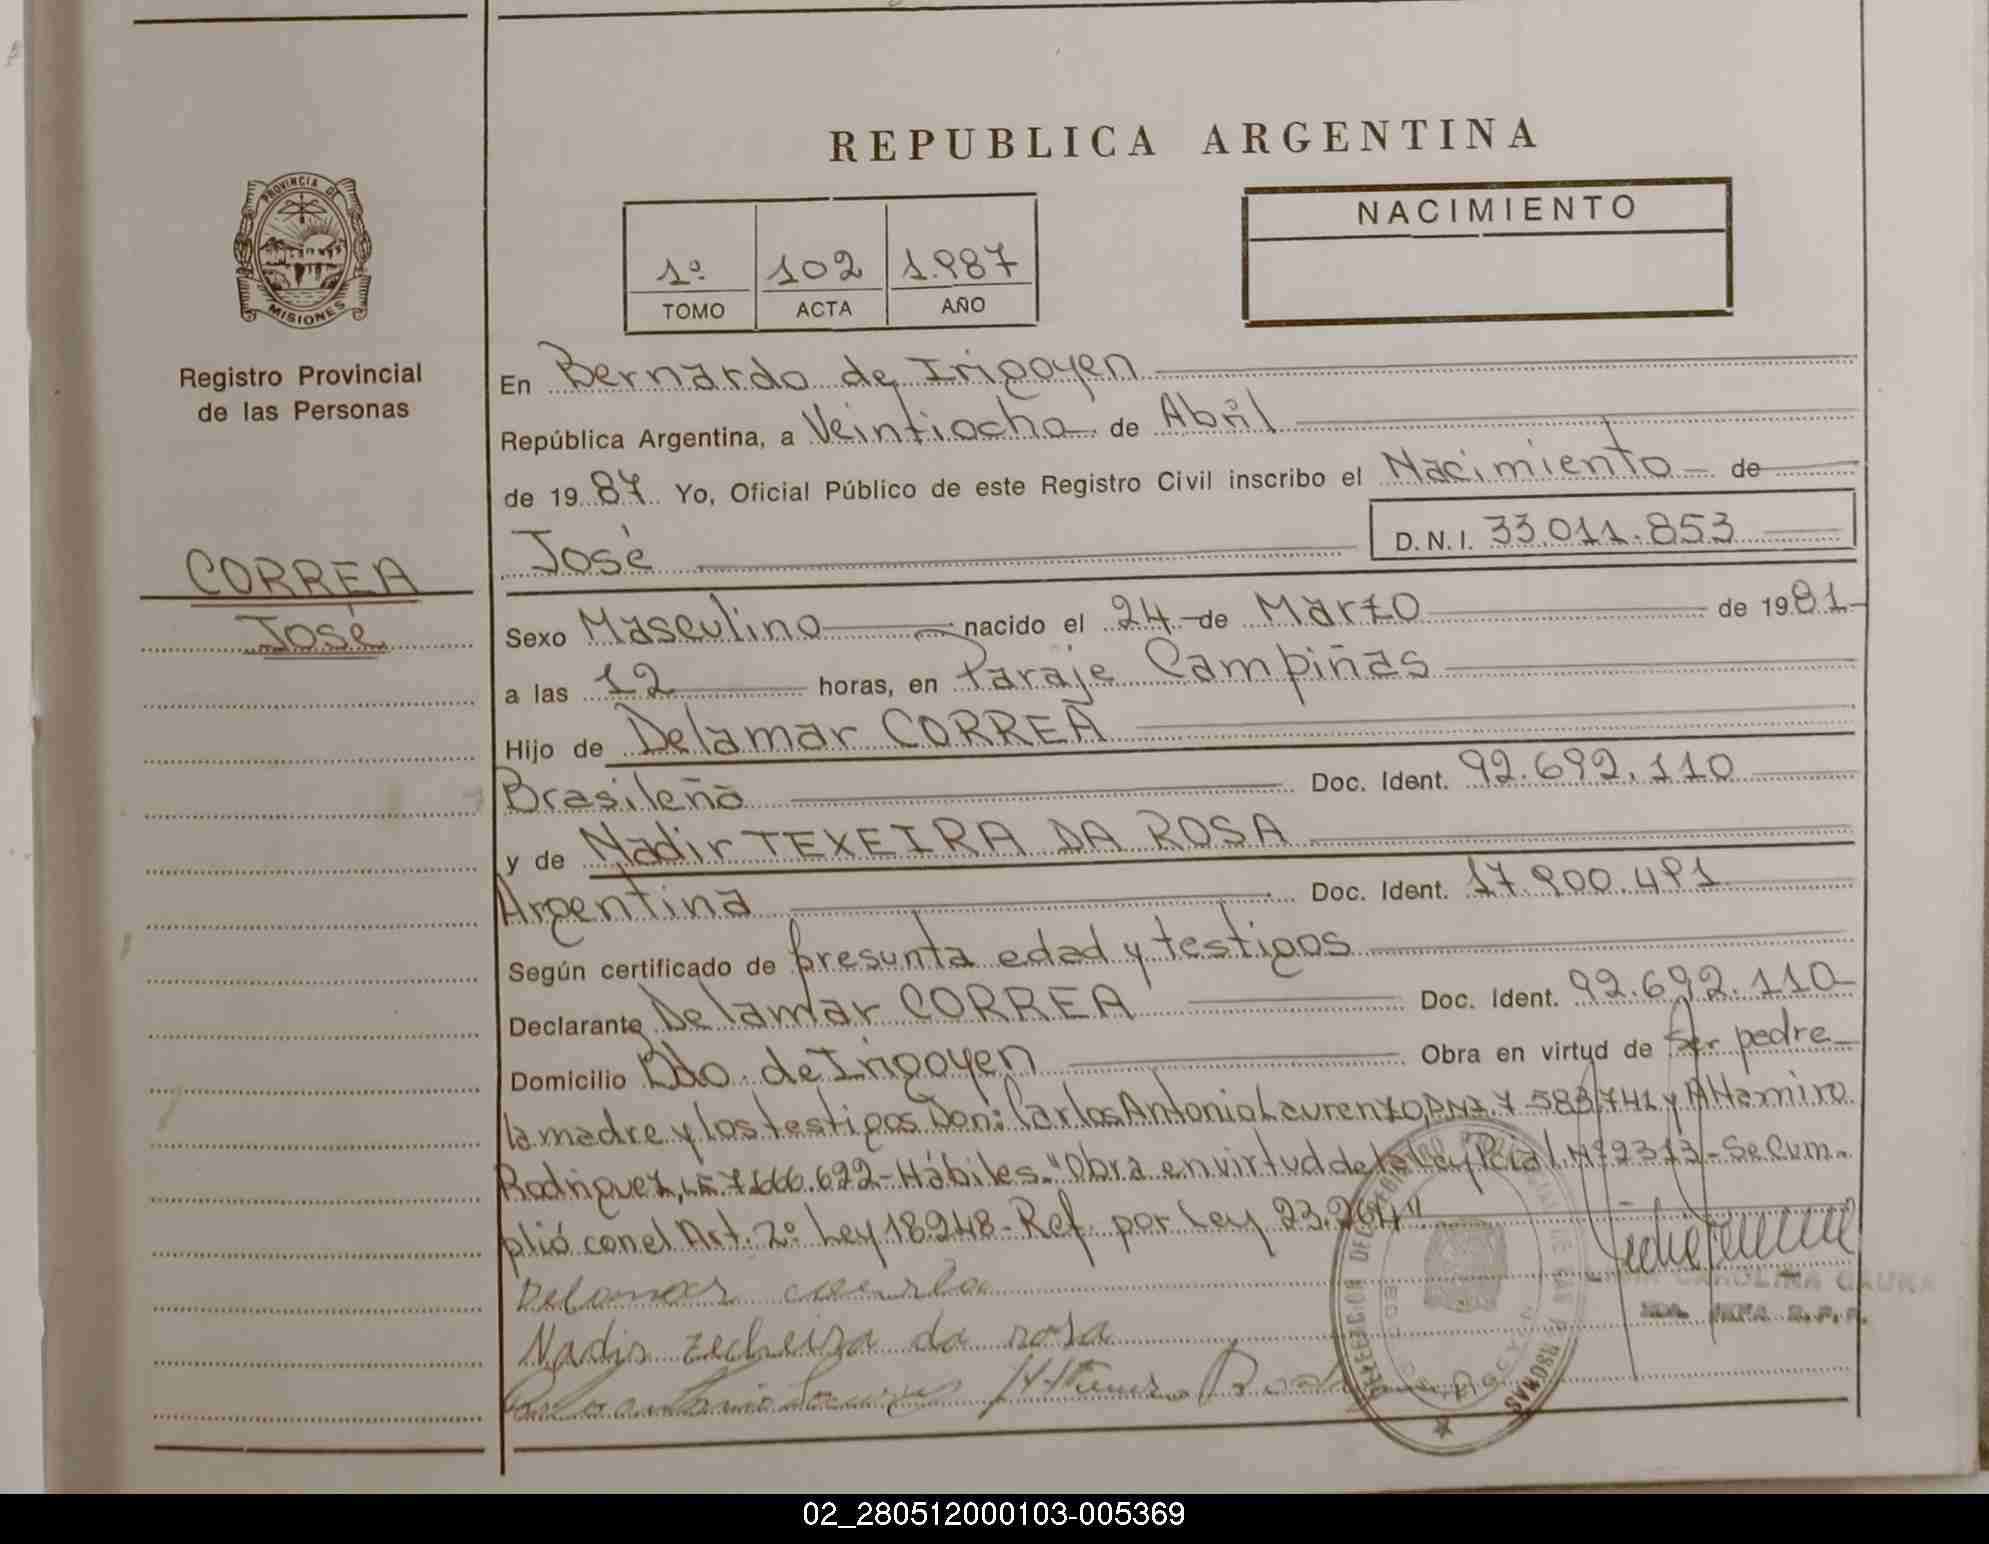 REPUBLICA ARGENTINA
PROVINCIA DE MISIONES
Registro Provincial
de las Personas
CORREA
José
1º 102 1.987
TOMO ACTA AÑO
NACIMIENTO
En Bernardo de Irigoyen
República Argentina, a Veintiocho de Abril
de 1987 Yo, Oficial Público de este Registro Civil inscribo el Nacimiento de
José D.N.I. 33.011.853
Sexo Masculino nacido el 24 de Marzo de 1981
a las 12 horas, en Paraje Campiñas
Hijo de Delamar CORREA
Brasileño Doc. Ident. 92.692.110
y de Nadir TEXEIRA DA ROSA
Argentina Doc. Ident. 17.900.491
Según certificado de presunta edad y testigos
Declarante Delamar CORREA Doc. Ident. 92.692.110
Domicilio Bdo. de Irigoyen Obra en virtud de Ser padre
la madre y los testigos Don: Carlos Antonio Laurenzo, DNI. 7.583.741 y Altamiro
Rodriguez, LE 7.666.692-Hábiles. "Obra en virtud de la Ley Pcial. Nº 2313- Se Cum-
plió con el Art. 2º Ley 18.248- Ref. por Ley 23.264"
Delamar
Nadir zecheira da rosa
CAROLINA
DIRECCION DEL REGISTRO PROVINCIAL DE LAS PERSONAS
02_280512000103-005369